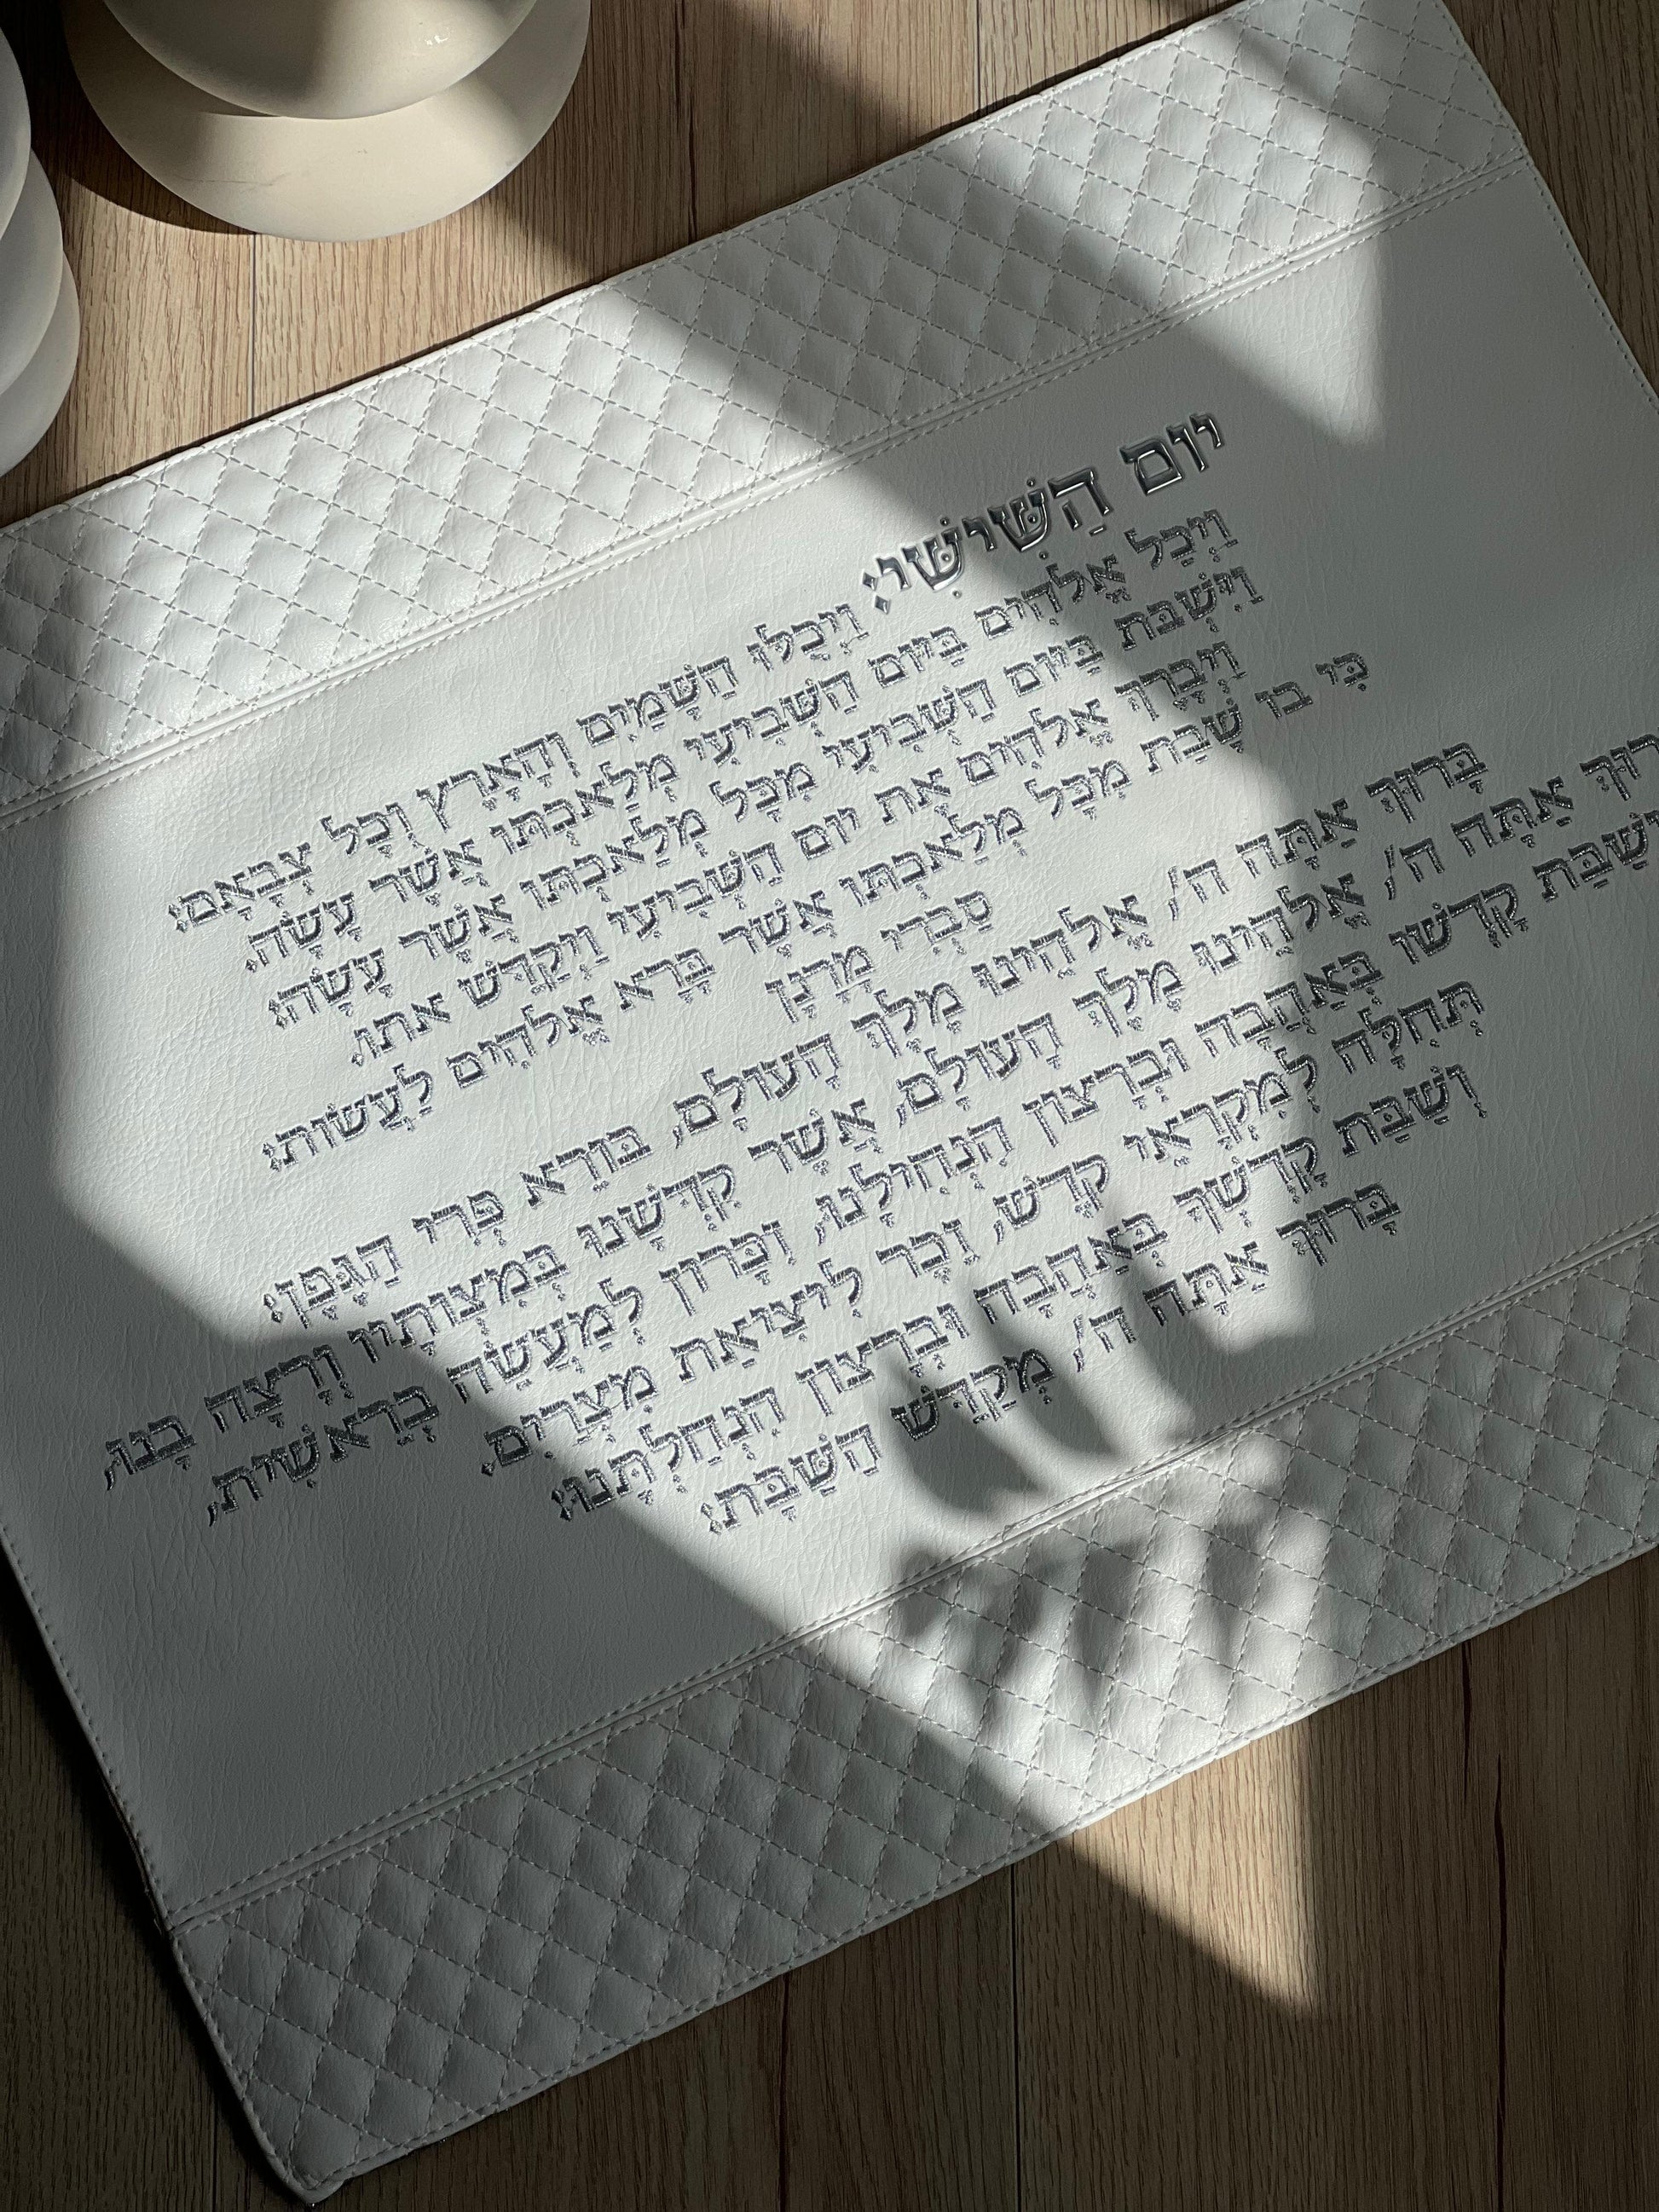 יוֹם הַשִּׁישִּׁי: וַיְכֻלּוּ הַשָּׁמַיִם וְהָאָרֶץ וְכָל צְבָאָם:
וַיְכַל אֱלֹהִים בַּיּוֹם הַשְּׁבִיעִי מְלַאכְתּוֹ אֲשֶׁר עָשָׂה.
וַיִּשְׁבֹּת בַּיּוֹם הַשְּׁבִיעִי מִכָּל מְלַאכְתּוֹ אֲשֶׁר עָשָׂה:
וַיְבָרֶךְ אֱלֹהִים אֶת יוֹם הַשְּׁבִיעִי וַיְקַדֵּשׁ אֹתוֹ.
כִּי בוֹ שָׁבַת מִכָּל מְלַאכְתּוֹ אֲשֶׁר בָּרָא אֱלֹהִים לַעֲשׂוֹת:
סַבְרִי מָרָנָן
בָּרוּךְ אַתָּה ה', אֱלֹהֵינוּ מֶלֶךְ הָעוֹלָם, בּוֹרֵא פְּרִי הַגָּפֶן:
רוּךְ אַתָּה ה', אֱלֹהֵינוּ מֶלֶךְ הָעוֹלָם, אֲשֶׁר קִדְּשָׁנוּ בְּמִצְוֹתָיו וְרָצָה בָנוּ,
וְשַׁבַּת קָדְשׁוֹ בְּאַהֲבָה וּבְרָצוֹן הִנְחִילָנוּ, זִכָּרוֹן לְמַעֲשֵׂה בְרֵאשִׁית,
תְּחִלָּה לְמִקְרָאֵי קֹדֶשׁ, זֵכֶר לִיצִיאַת מִצְרַיִם.
וְשַׁבַּת קָדְשְׁךָ בְּאַהֲבָה וּבְרָצוֹן הִנְחַלְתָּנוּ:
בָּרוּךְ אַתָּה ה', מְקַדֵּשׁ הַשַּׁבָּת: